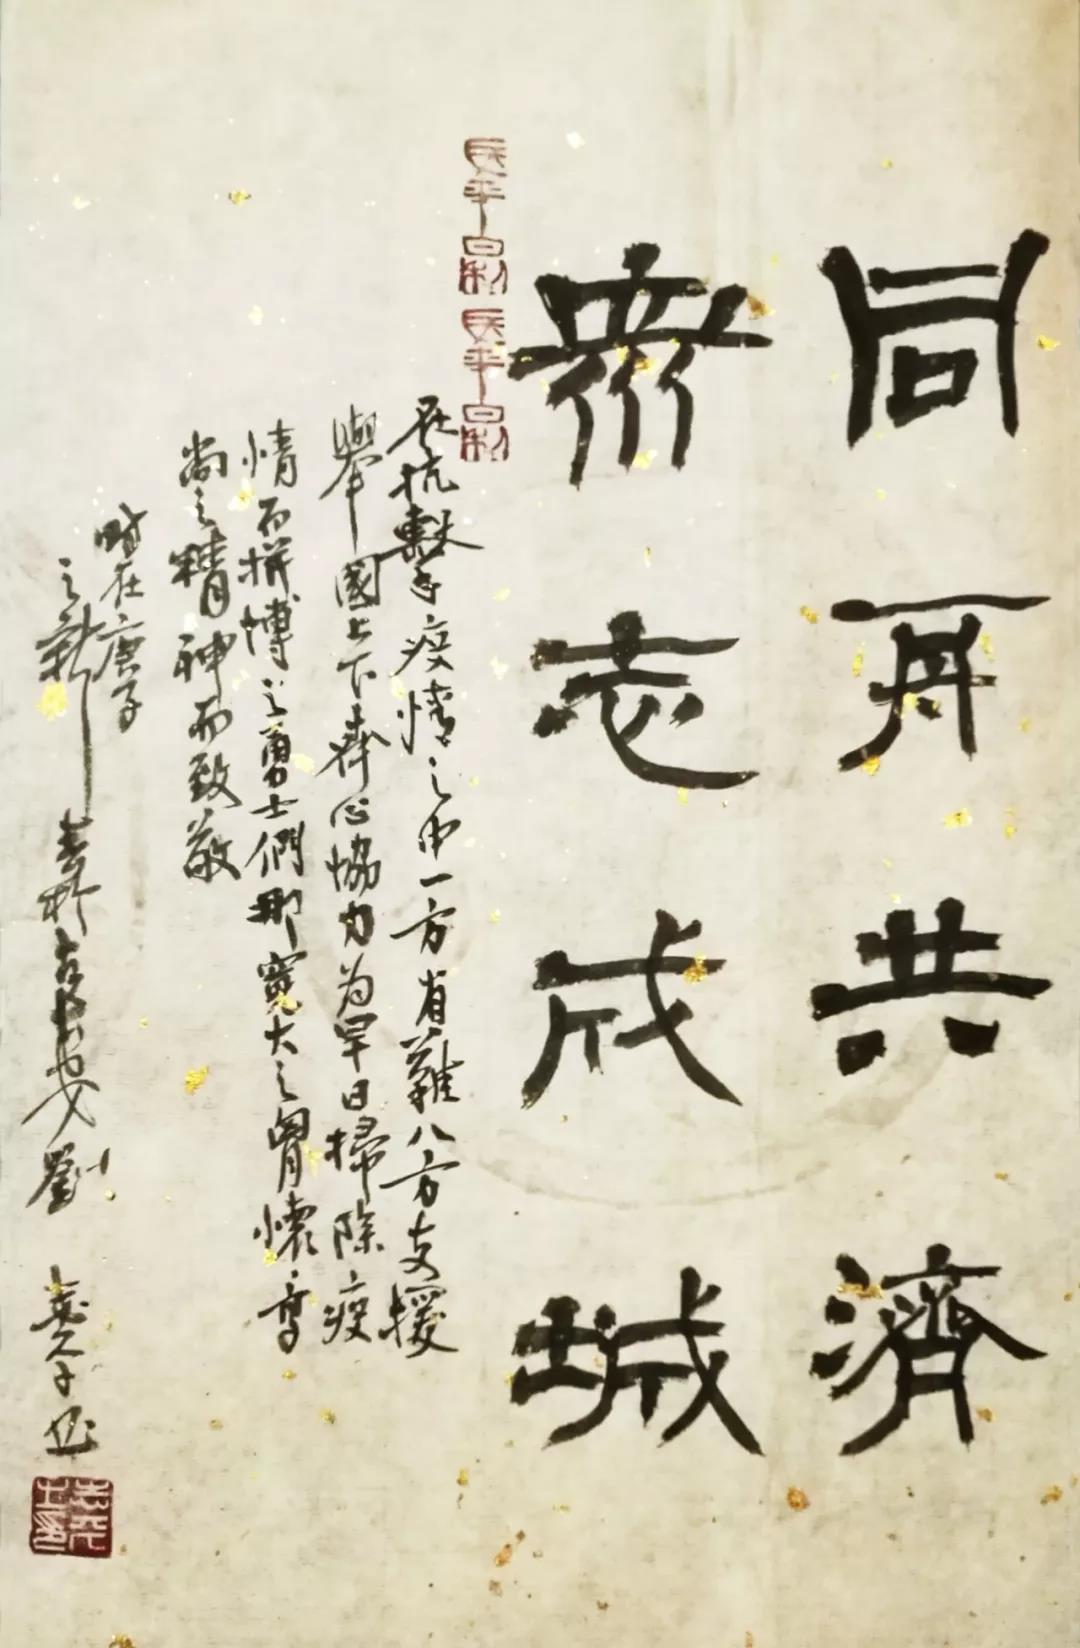 同舟共濟
衆志成城
在抗擊疫情之中一方有難八方支援
舉國上下齊心協力为早日掃除疫
情而拼博之勇士們那寬大之胷懷高
尚之精神而致敬
時在庚子
之新春於古長安劉